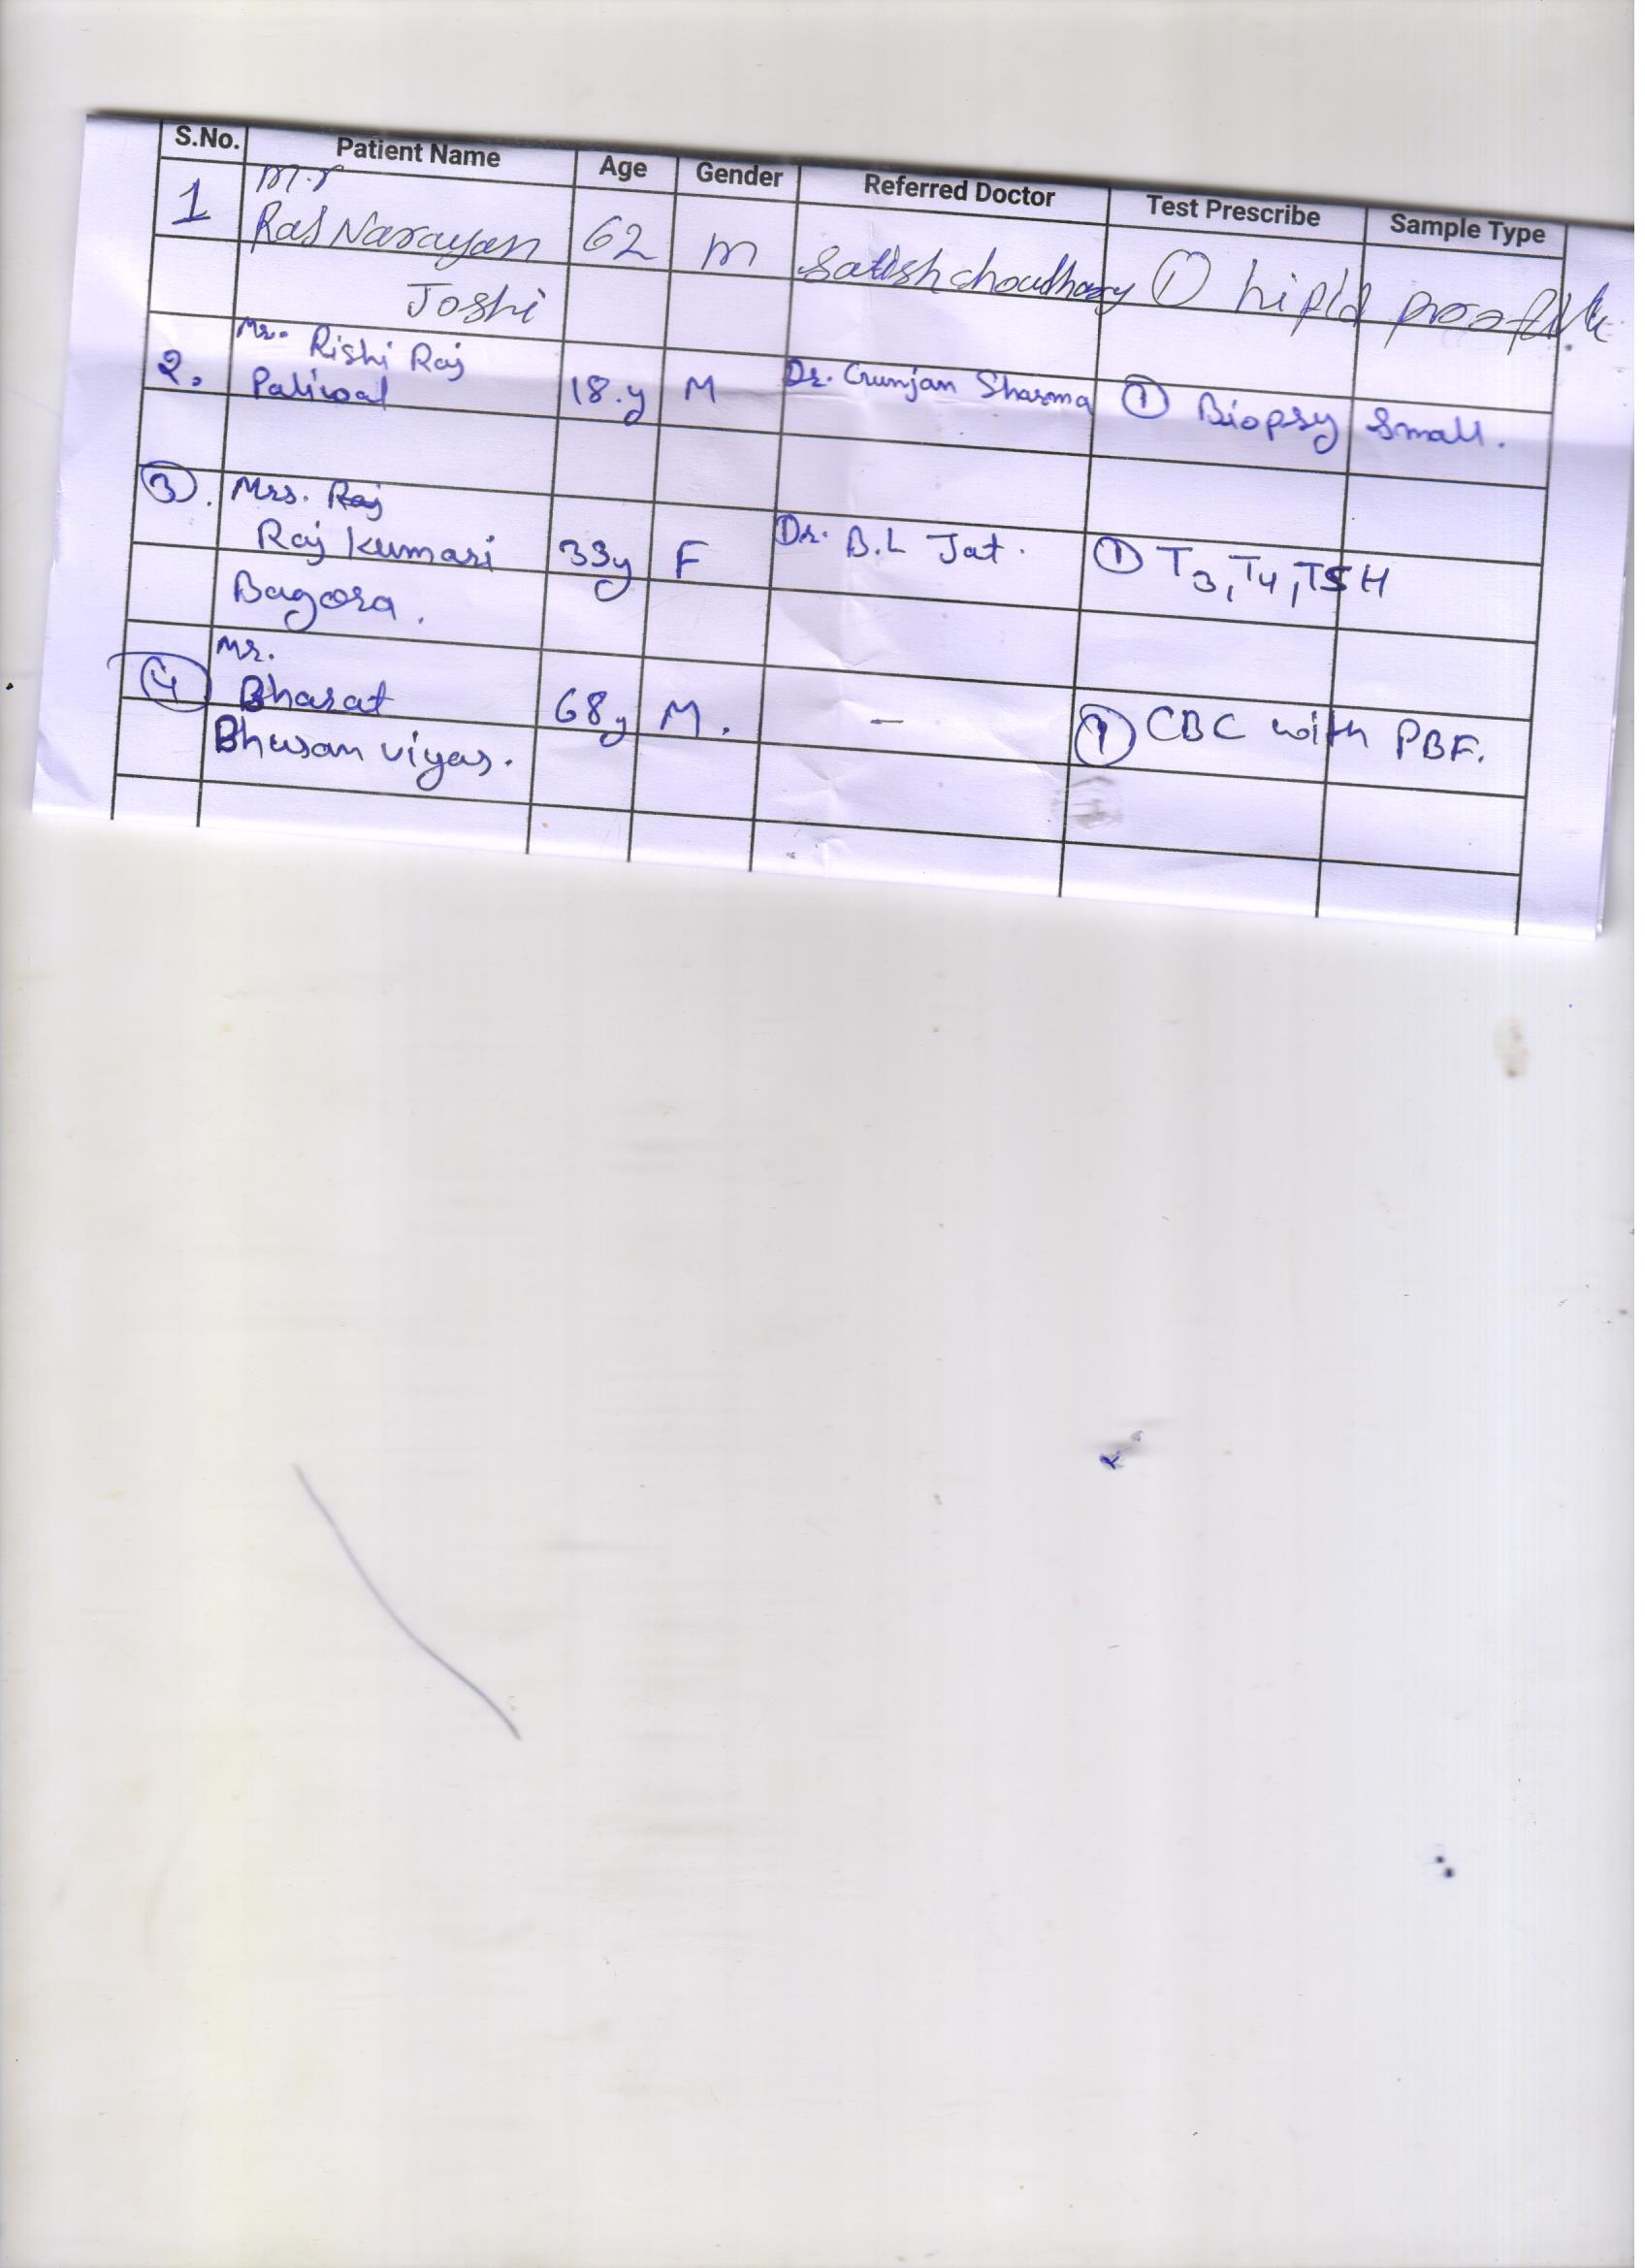 S.No. Patient Name Age Gender Referred Doctor Test Prescribe Sample Type
M.r
1 Raj Narayan 62 m Satish choudhary ① lipid
Joshi
Mr. Rishi Raj
2. Paliwal 18.y M Dr. Gunjan Sharma ① Biopsy Small.
③. Mrs. Raj
Raj Kumari 33y F Dr. B.L Jat. ① T3, T4, TSH
Bagora.
Mr.
④ Bharat 68y M. - ① CBC with PBF.
Bhusan viyas.